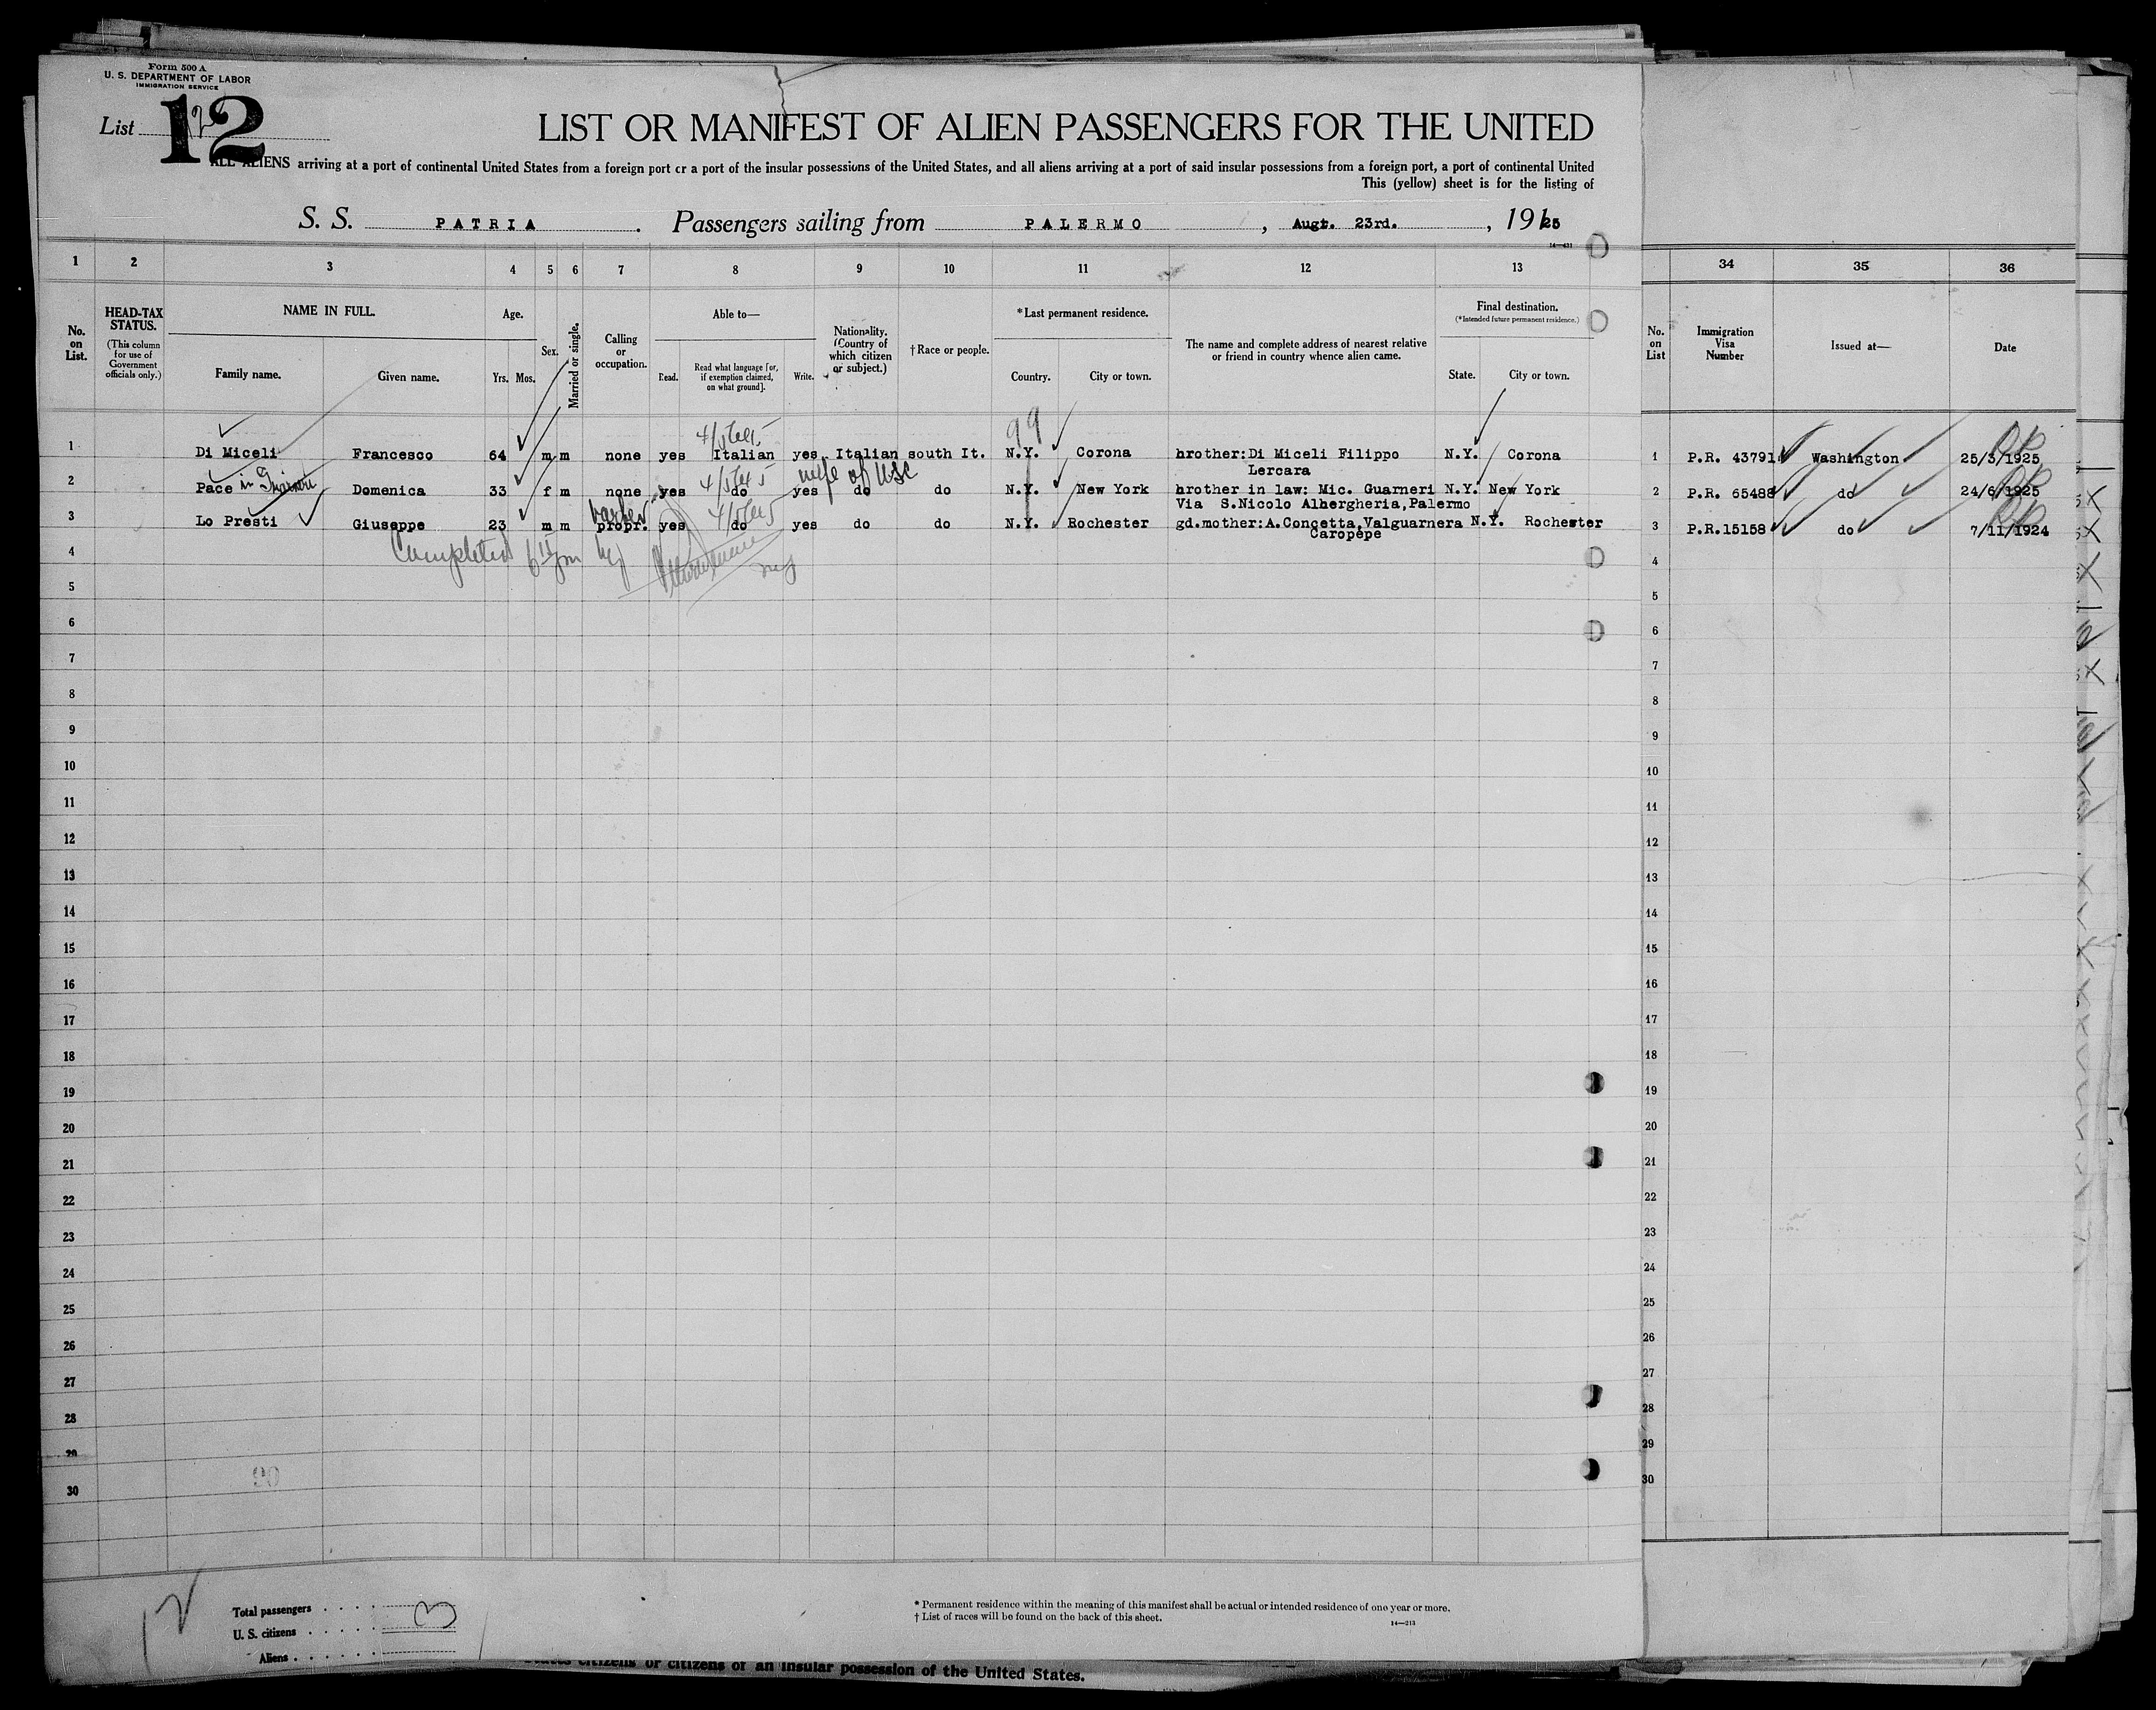 Form 500 A
U. S. DEPARTMENT OF LABOR
IMMIGRATION SERVICE
List 12
LIST OR MANIFEST OF ALIEN PASSENGERS FOR THE UNITED
ALL ALIENS arriving at a port of continental United States from a foreign port or a port of the insular possessions of the United States, and all aliens arriving at a port of said insular possessions from a foreign port, a port of continental United
This (yellow) sheet is for the listing of
S. S. PATRIA. Passengers sailing from PALERMO, Augt. 23rd., 1925
14—431
1 2 3 4 5 6 7 8 9 10 11 12 13 34 35 36
No. on List.
HEAD-TAX STATUS.
(This column for use of Government officials only.)
NAME IN FULL.
Family name. Given name.
Age.
Yrs. Mos.
Sex.
Married or single.
Calling or occupation.
Able to—
Read. Read what language [or, if exemption claimed, on what ground]. Write.
Nationality. (Country of which citizen or subject.)
†Race or people.
*Last permanent residence.
Country. City or town.
The name and complete address of nearest relative or friend in country whence alien came.
Final destination.
(*Intended future permanent residence.)
State. City or town.
No. on List
Immigration Visa Number
Issued at—
Date
99
1 Di Miceli Francesco 64 m m none yes Italian yes Italian south It. N.Y. Corona brother:Di Miceli Filippo N.Y. Corona 1 P.R. 43791 Washington 25/3/1925
Lercara
wife of USC
2 Pace in Domenica 33 f m none yes do yes do do N.Y. New York brother in law: Mic. Guarneri N.Y. New York 2 P.R. 65488 do 24/6/1925
Via S.Nicolo Albergheria,Palermo
barber
3 Lo Presti Giuseppe 23 m m propr. yes do yes do do N.Y. Rochester gd.mother:A.Concetta,Valguarnera N.Y. Rochester 3 P.R.15158 do 7/11/1924
Caropepe
Completed
4 4
5 5
6 6
7 7
8 8
9 9
10 10
11 11
12 12
13 13
14 14
15 15
16 16
17 17
18 18
19 19
20 20
21 21
22 22
23 23
24 24
25 25
26 26
27 27
28 28
29 29
30 30
12
Total passengers . . . . 3
U. S. citizens . . . . .
Aliens . . . . . .
* Permanent residence within the meaning of this manifest shall be actual or intended residence of one year or more.
† List of races will be found on the back of this sheet.
14—213
States citizens or citizens of an insular possession of the United States.